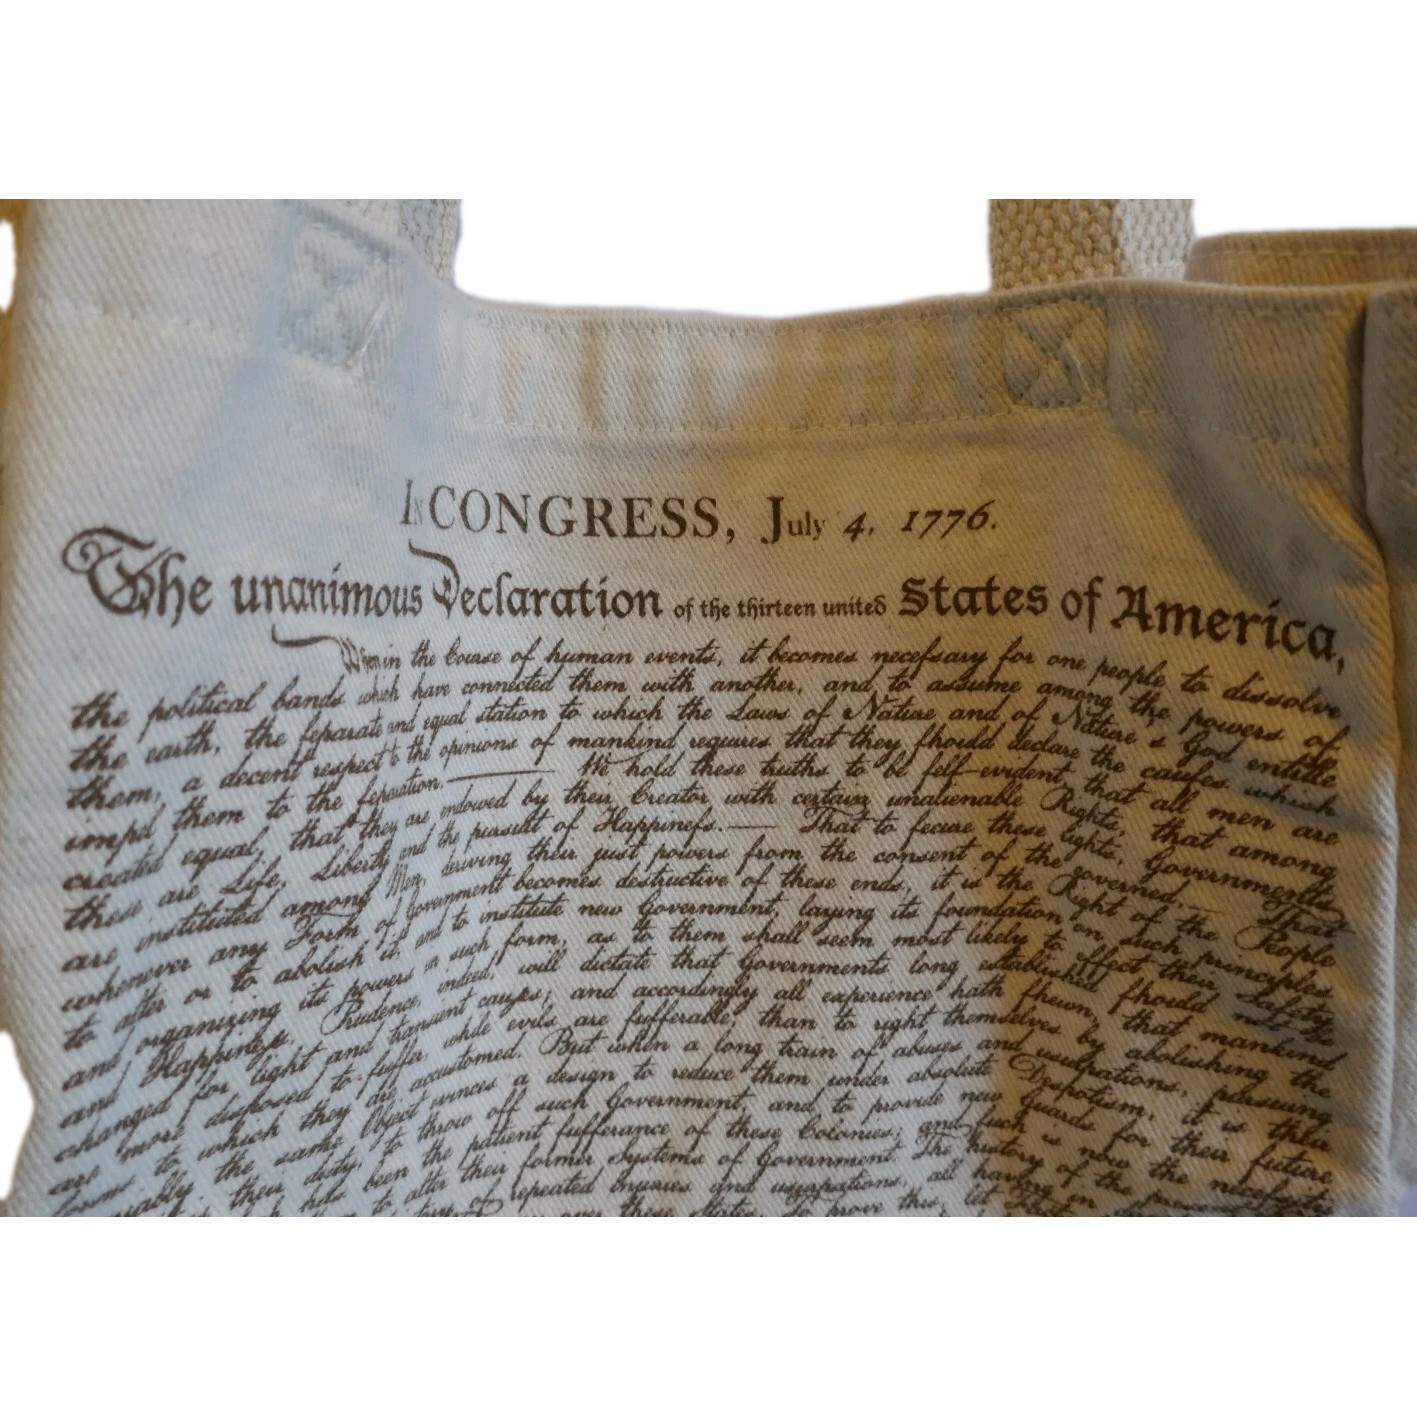 In CONGRESS, July 4, 1776.
The unanimous Declaration of the thirteen united States of America,
When in the Course of human events, it becomes necessary for one people to dissolve
the political bands which have connected them with another, and to assume among the powers of
the earth, the separate and equal station to which the Laws of Nature and of Nature's God entitle
them, a decent respect to the opinions of mankind requires that they should declare the causes which
impel them to the separation. — We hold these truths to be self-evident, that all men are
created equal, that they are endowed by their Creator with certain unalienable Rights, that among
these are Life, Liberty and the pursuit of Happiness. — That to secure these rights, Governments
are instituted among Men, deriving their just powers from the consent of the governed, — That
whenever any Form of Government becomes destructive of these ends, it is the Right of the People
to alter or to abolish it, and to institute new Government, laying its foundation on such principles
and organizing its powers in such form, as to them shall seem most likely to effect their Safety
and Happiness. Prudence, indeed, will dictate that Governments long established should not be
changed for light and transient causes; and accordingly all experience hath shewn, that mankind
are more disposed to suffer, while evils are sufferable, than to right themselves by abolishing the
forms to which they are accustomed. But when a long train of abuses and usurpations, pursuing
invariably the same Object evinces a design to reduce them under absolute Despotism, it is their
their duty, to throw off such Government, and to provide new Guards for their future
has been the patient sufferance of these Colonies; and such is now the necessity
to alter their former Systems of Government. The history of the present
of repeated injuries and usurpations, all having in
over these States. To prove this, let